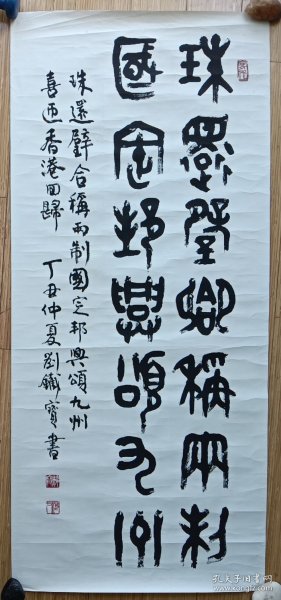 珠還璧合稱兩制
國定邦興頌九州
珠還璧合稱兩制國定邦興頌九州
喜迎香港回歸 丁丑仲夏劉鐵寶書
孔夫子旧书网